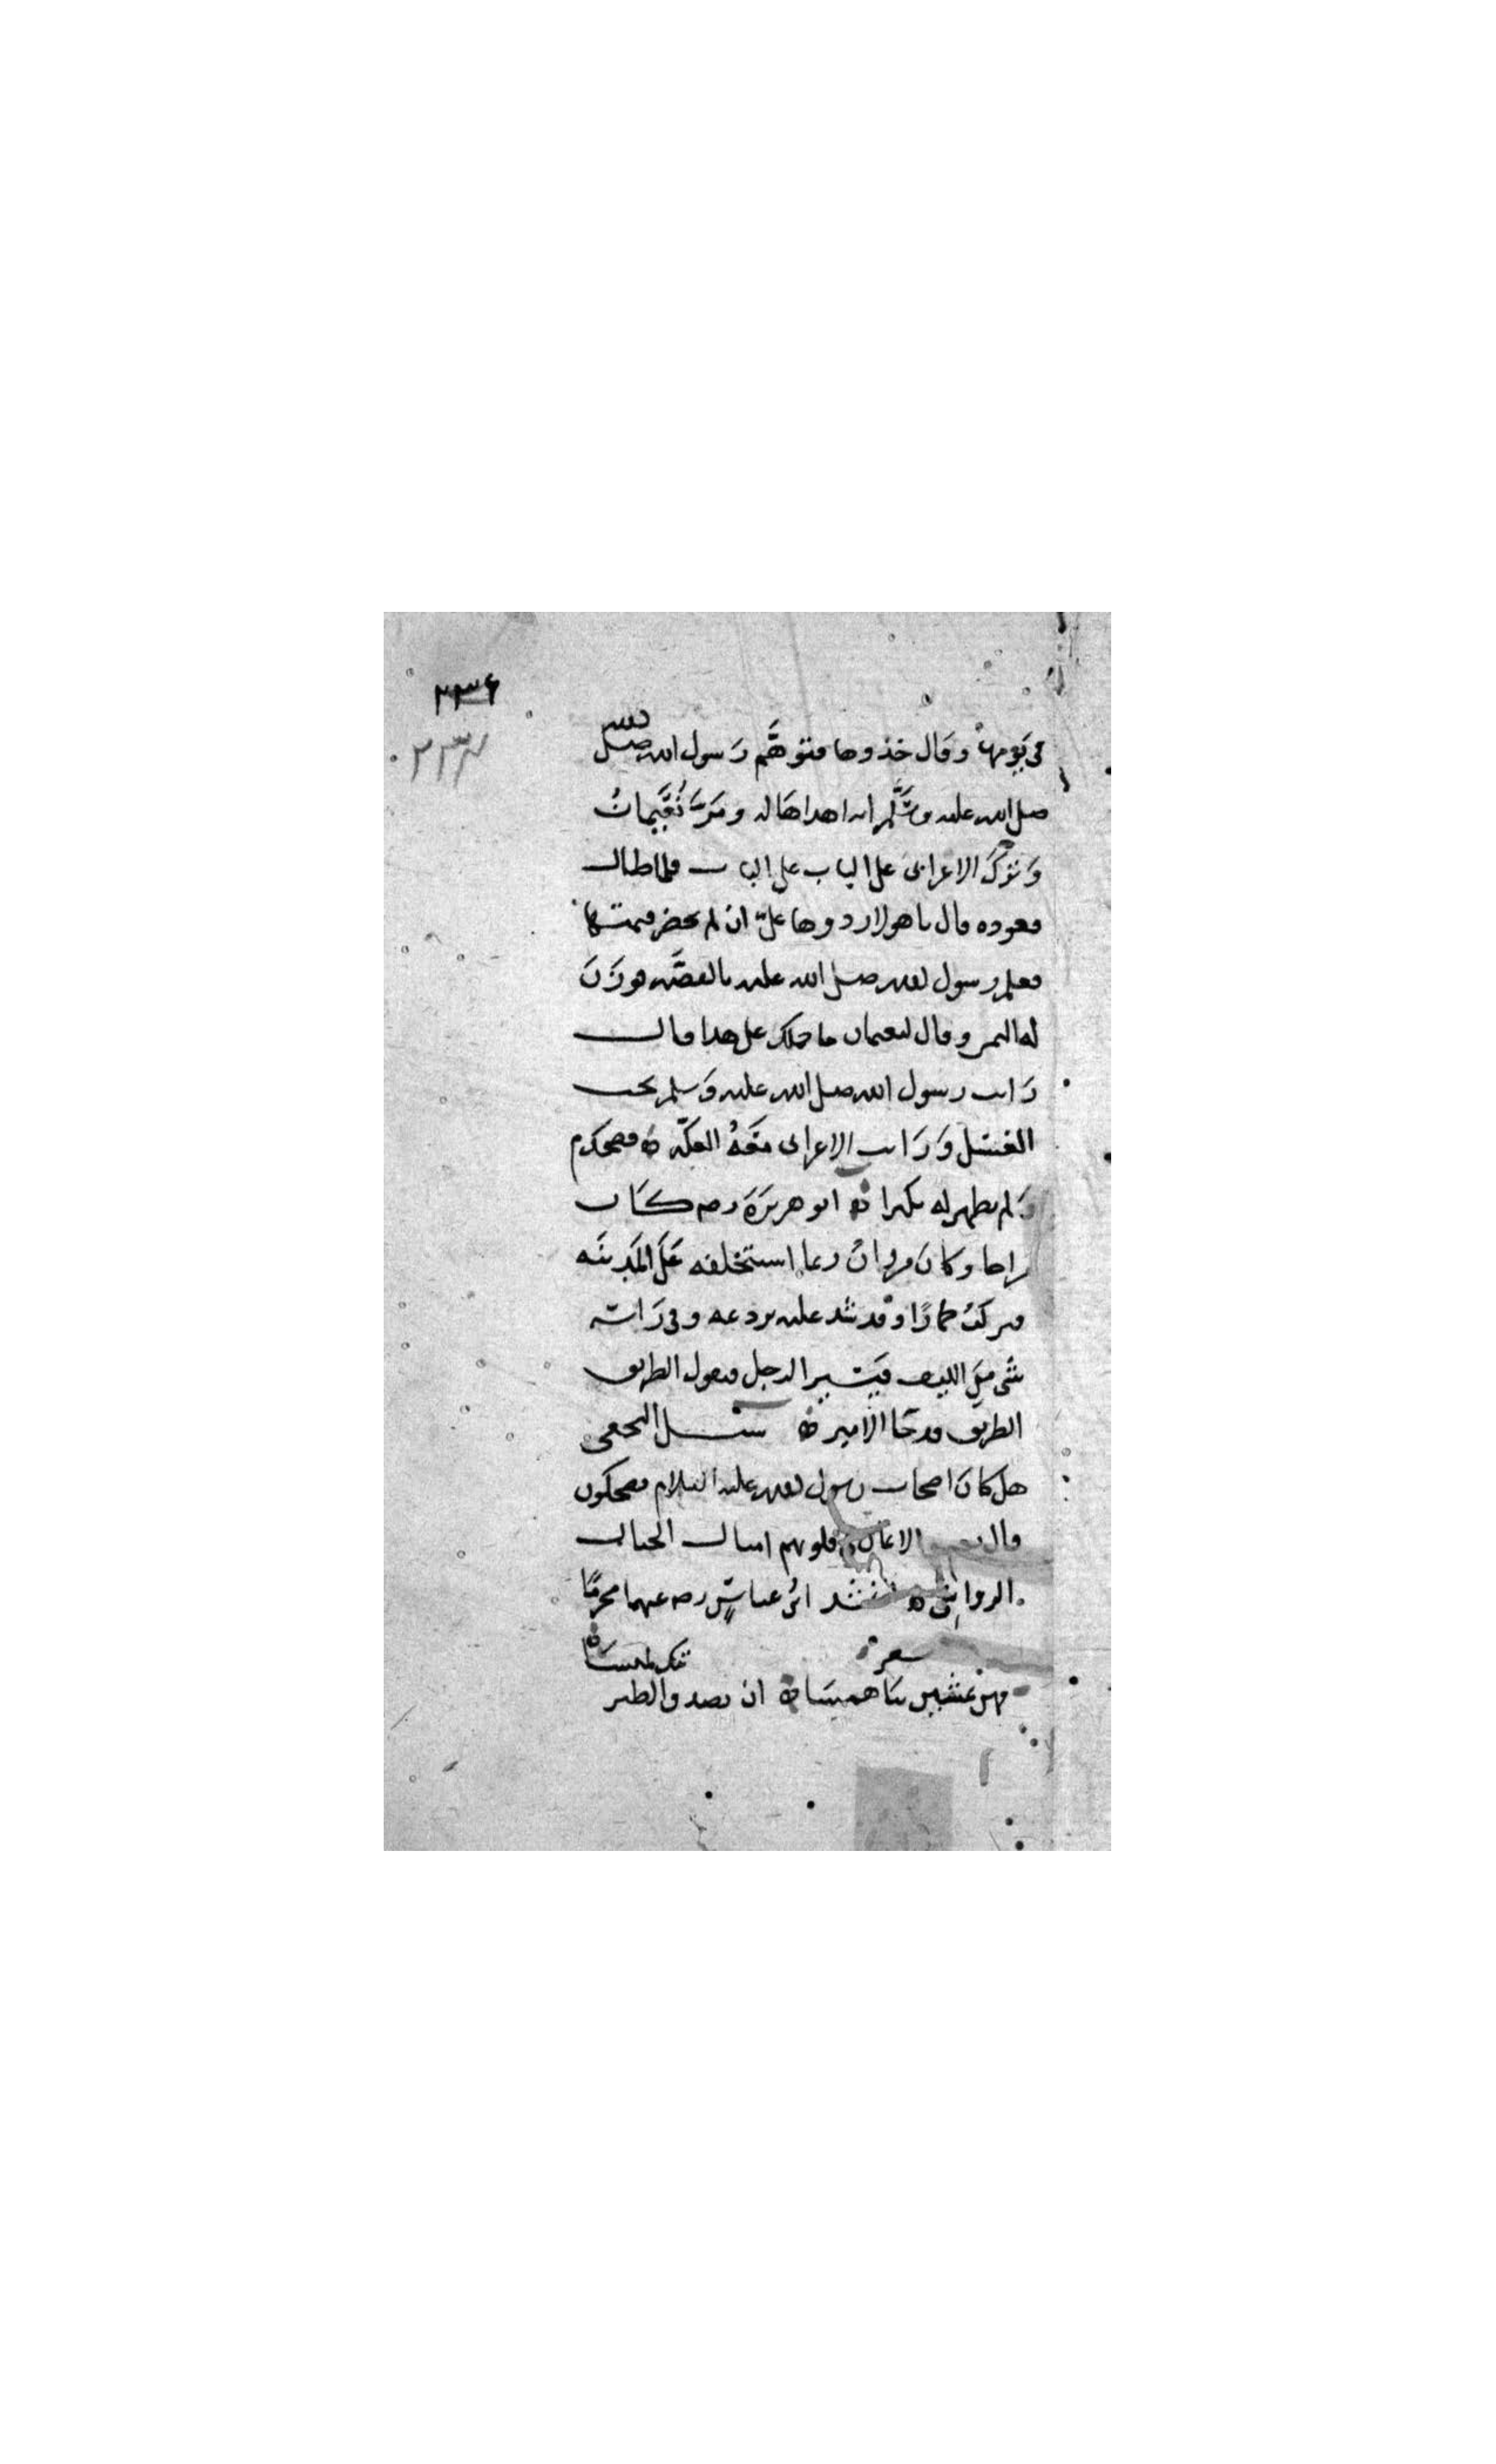 ٢٣٦
٢٣٧
في يومها وقال خذوها فتوهَّم رَسول الله صلى
صلى الله عليه وسَلَّم انه اهداها له ومَرَّ نُعَيمانُ
وَترَكَ الاعرابى على الباب على الباب فلما طال
قعوده قال يا هولا ردوها علىّ ان لم يحضر قيمتها
فعلم رسول الله صلى الله عليه بالقصَّه فوَزَنَ
له الثمن وقال لنعيمان ما حملك على هذا قال
رَايت رسول الله صلى الله عليه وَسلم يحب
العسَل وَرَايت الاعرابى مَعَهُ العكّه فضحك م
وَلم يظهر له نكيرا ابو هريرَة رضه كان
مزاحا وكان مروانُ ربما استخلفه عَلَى المَدينَه
فيركبُ حمارًا وقد شد عليه بردعه وفى رَاسه
شَى مِنَ الليف فيَسير الرجل فيقول الطريق
الطريق قد جَا الامير سئل النخعى
هل كانَ اصحاب رسول الله عليه السلام يضحكون
قال نعم والايمان فى قلوبهم امثال الجبال
الرواسى انشد ابنُ عباسٍ رضه عنهما محرمًا
شعر
وهنّ يمشين بنَا هميسَا ان يصدق الطير
ننك لميسَا